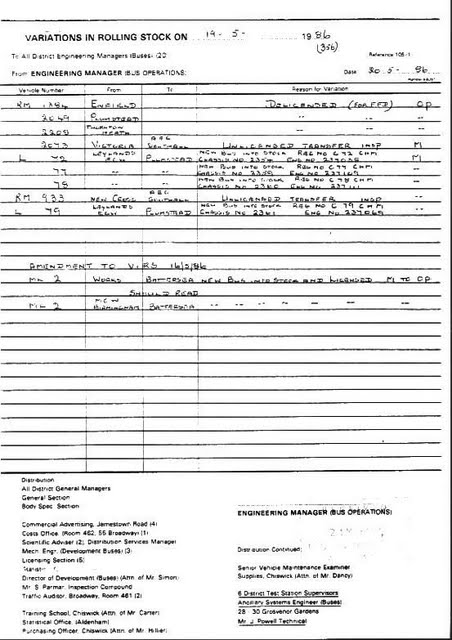 VARIATIONS IN ROLLING STOCK ON 19 - 5 - 1986
(356)
To All District Engineering Managers (Buses) (20)
Reference 105/1
From ENGINEERING MANAGER (BUS OPERATIONS)
Date 20.5.- 86
Vehicle Number From To Reason for Variation
RM 1384 ENFIELD DELICENCED (FOR FFD) OP
2049 PLUMSTEAD -- -- --
2208 THORNTON HEATH -- -- --
2073 VICTORIA SOUTHALL UNLICENCED TRANSFER INSP M
L 72 LEYLANDS PLUMSTEAD NEW BUS INTO STOCK REG NO C 72 CHM
CHASSIS NO ENG NO
77 -- -- NEW BUS INTO STOCK REG NO C 77 CHM --
CHASSIS NO 2359 ENG NO
78 -- -- NEW BUS INTO STOCK REG NO C 78 CHM --
CHASSIS NO 2360 ENG NO
RM 933 NEW CROSS SOUTHALL UNLICENCED TRANSFER INSP --
L 79 LEYLANDS PLUMSTEAD NEW BUS INTO STOCK REG NO C 79 CHM --
CHASSIS NO 2361 ENG NO 237069
AMENDMENT TO V.I.R.S 16/5/86
ML 2 WORKS BATTERSEA NEW BUS INTO STOCK AND LICENSED M TO OP
SHOULD READ
ML 2 MCW BIRMINGHAM BATTERSEA -- -- -- -- -- --
Distribution
All District General Managers
General Section
Body Spec Section
ENGINEERING MANAGER (BUS OPERATIONS)
Commercial Advertising, Jamestown Road (4)
Costs Office, (Room 462, 55 Broadway) (1)
Scientific Adviser (2), Distribution Services Manager
Mech. Engr. (Development Buses) (3)
Licensing Section (5)
Director of Development (Buses) (Attn. of Mr. Simon)
Mr. S. Parmar, Inspection Compound
Traffic Auditor, Broadway, Room 461 (2)
Training School, Chiswick (Attn. of Mr. Carter)
Statistical Office, (Aldenham)
Purchasing Officer, Chiswick (Attn. of Mr. Hillier)
Distribution Continued:
Senior Vehicle Maintenance Examiner
Supplies, Chiswick (Attn. of Mr. Dancy)
6 District Test Station Supervisors
Ancillary Systems Engineer (Buses)
28 - 30 Grosvenor Gardens
Mr J Powell Technical